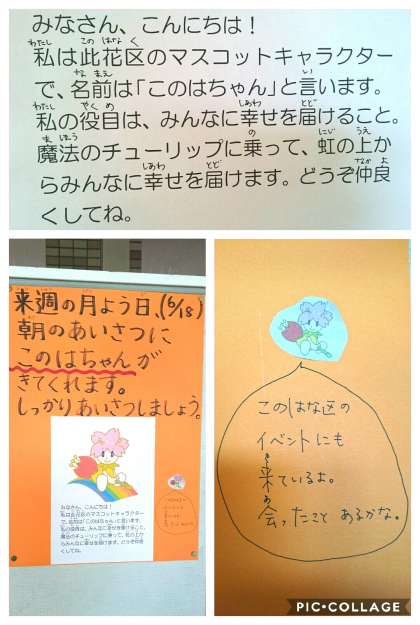 みなさん、こんにちは！
わたし このはなく
私は此花区のマスコットキャラクター
なまえ い
で、名前は「このはちゃん」と言います。
わたし やくめ しあわ とど
私の役目は、みんなに幸せを届けること。
まほう の にじ うえ
魔法のチューリップに乗って、虹の上か
しあわ とど なかよ
らみんなに幸せを届けます。どうぞ仲良
くしてね。
来週の月よう日、(6/18)
朝のあいさつに
このはちゃんが
きてくれます。
しっかりあいさつしましょう。
みなさん、こんにちは！
私は此花区のマスコットキャラクター
で、名前は「このはちゃん」と言います。
私の役目は、みんなに幸せを届けること。
魔法のチューリップに乗って、虹の上か
らみんなに幸せを届けます。どうぞ仲良
くしてね。
このはな区の
イベントにも
き
来ているよ。
あ
会ったこと あるかな。
PIC•COLLAGE